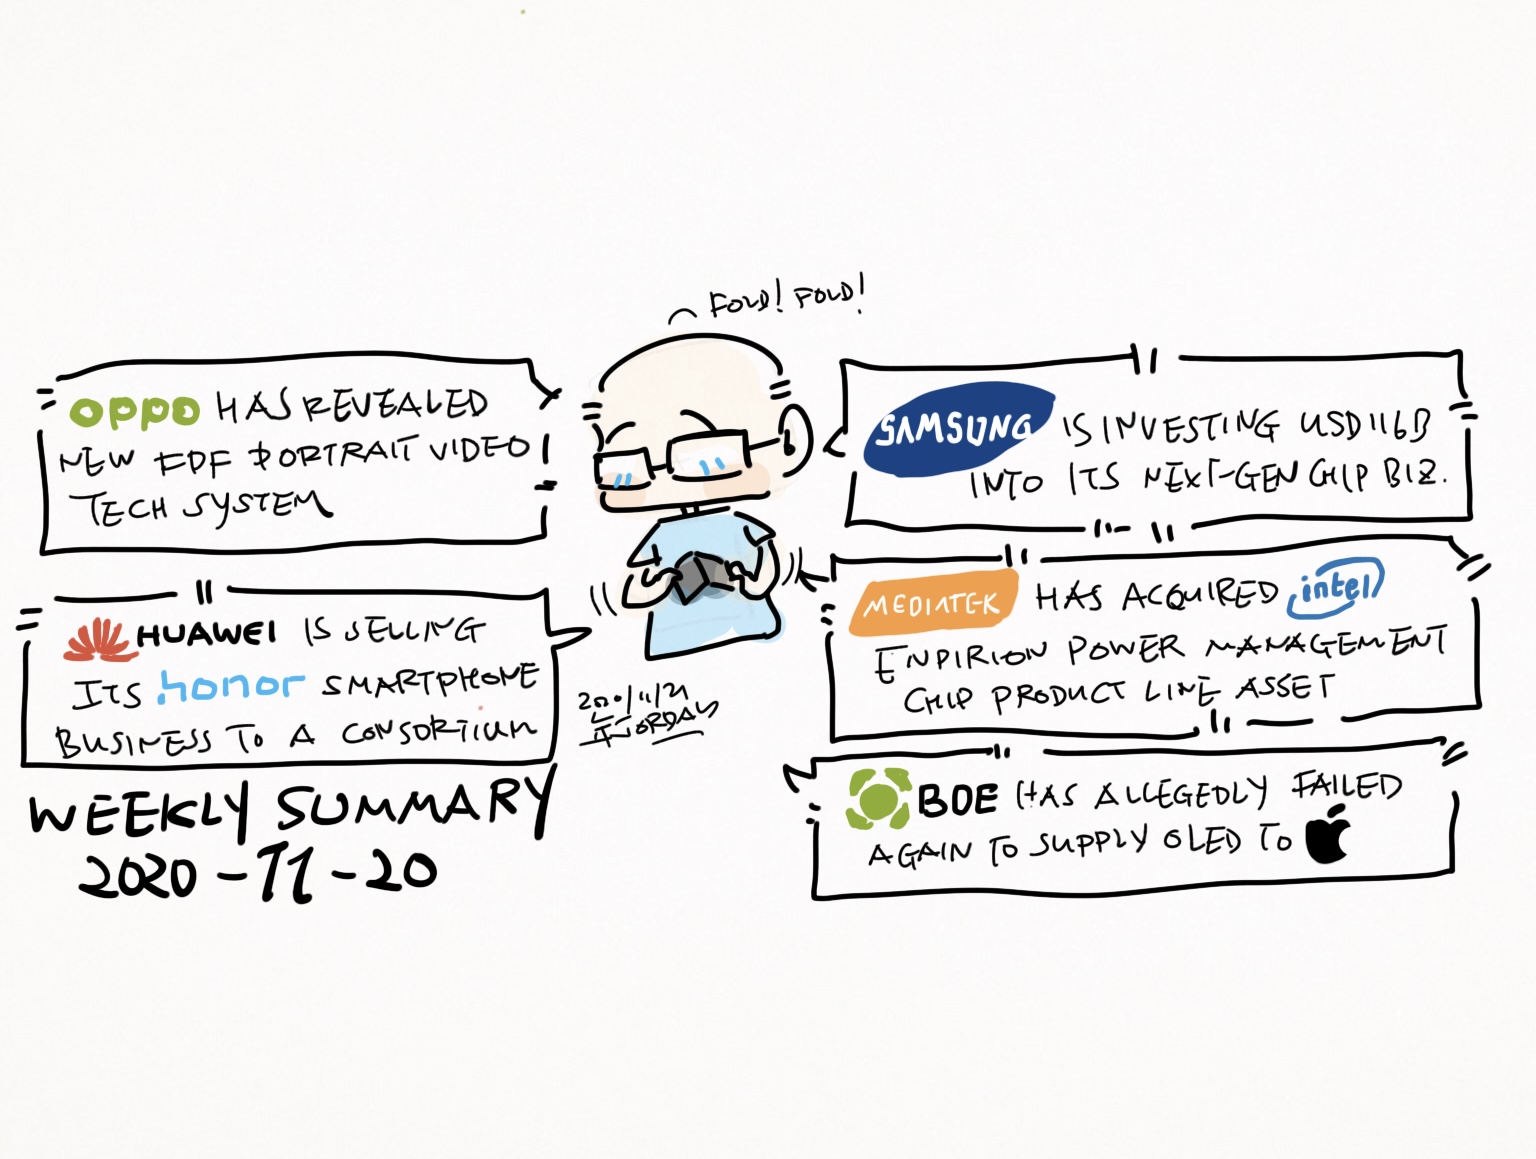 FOLD! FOLD!
OPPO HAS REVEALED
NEW FDF PORTRAIT VIDEO
TECH SYSTEM
HUAWEI IS SELLING
ITS honor SMARTPHONE
BUSINESS TO A CONSORTIUM
WEEKLY SUMMARY
2020-11-20
SAMSUNG IS INVESTING USD116B
INTO ITS NEXT-GEN CHIP BIZ.
MEDIATEK HAS ACQUIRED intel
ENPIRION POWER MANAGEMENT
CHIP PRODUCT LINE ASSET
BOE HAS ALLEGEDLY FAILED
AGAIN TO SUPPLY OLED TO
2020/11/21
JORDAN